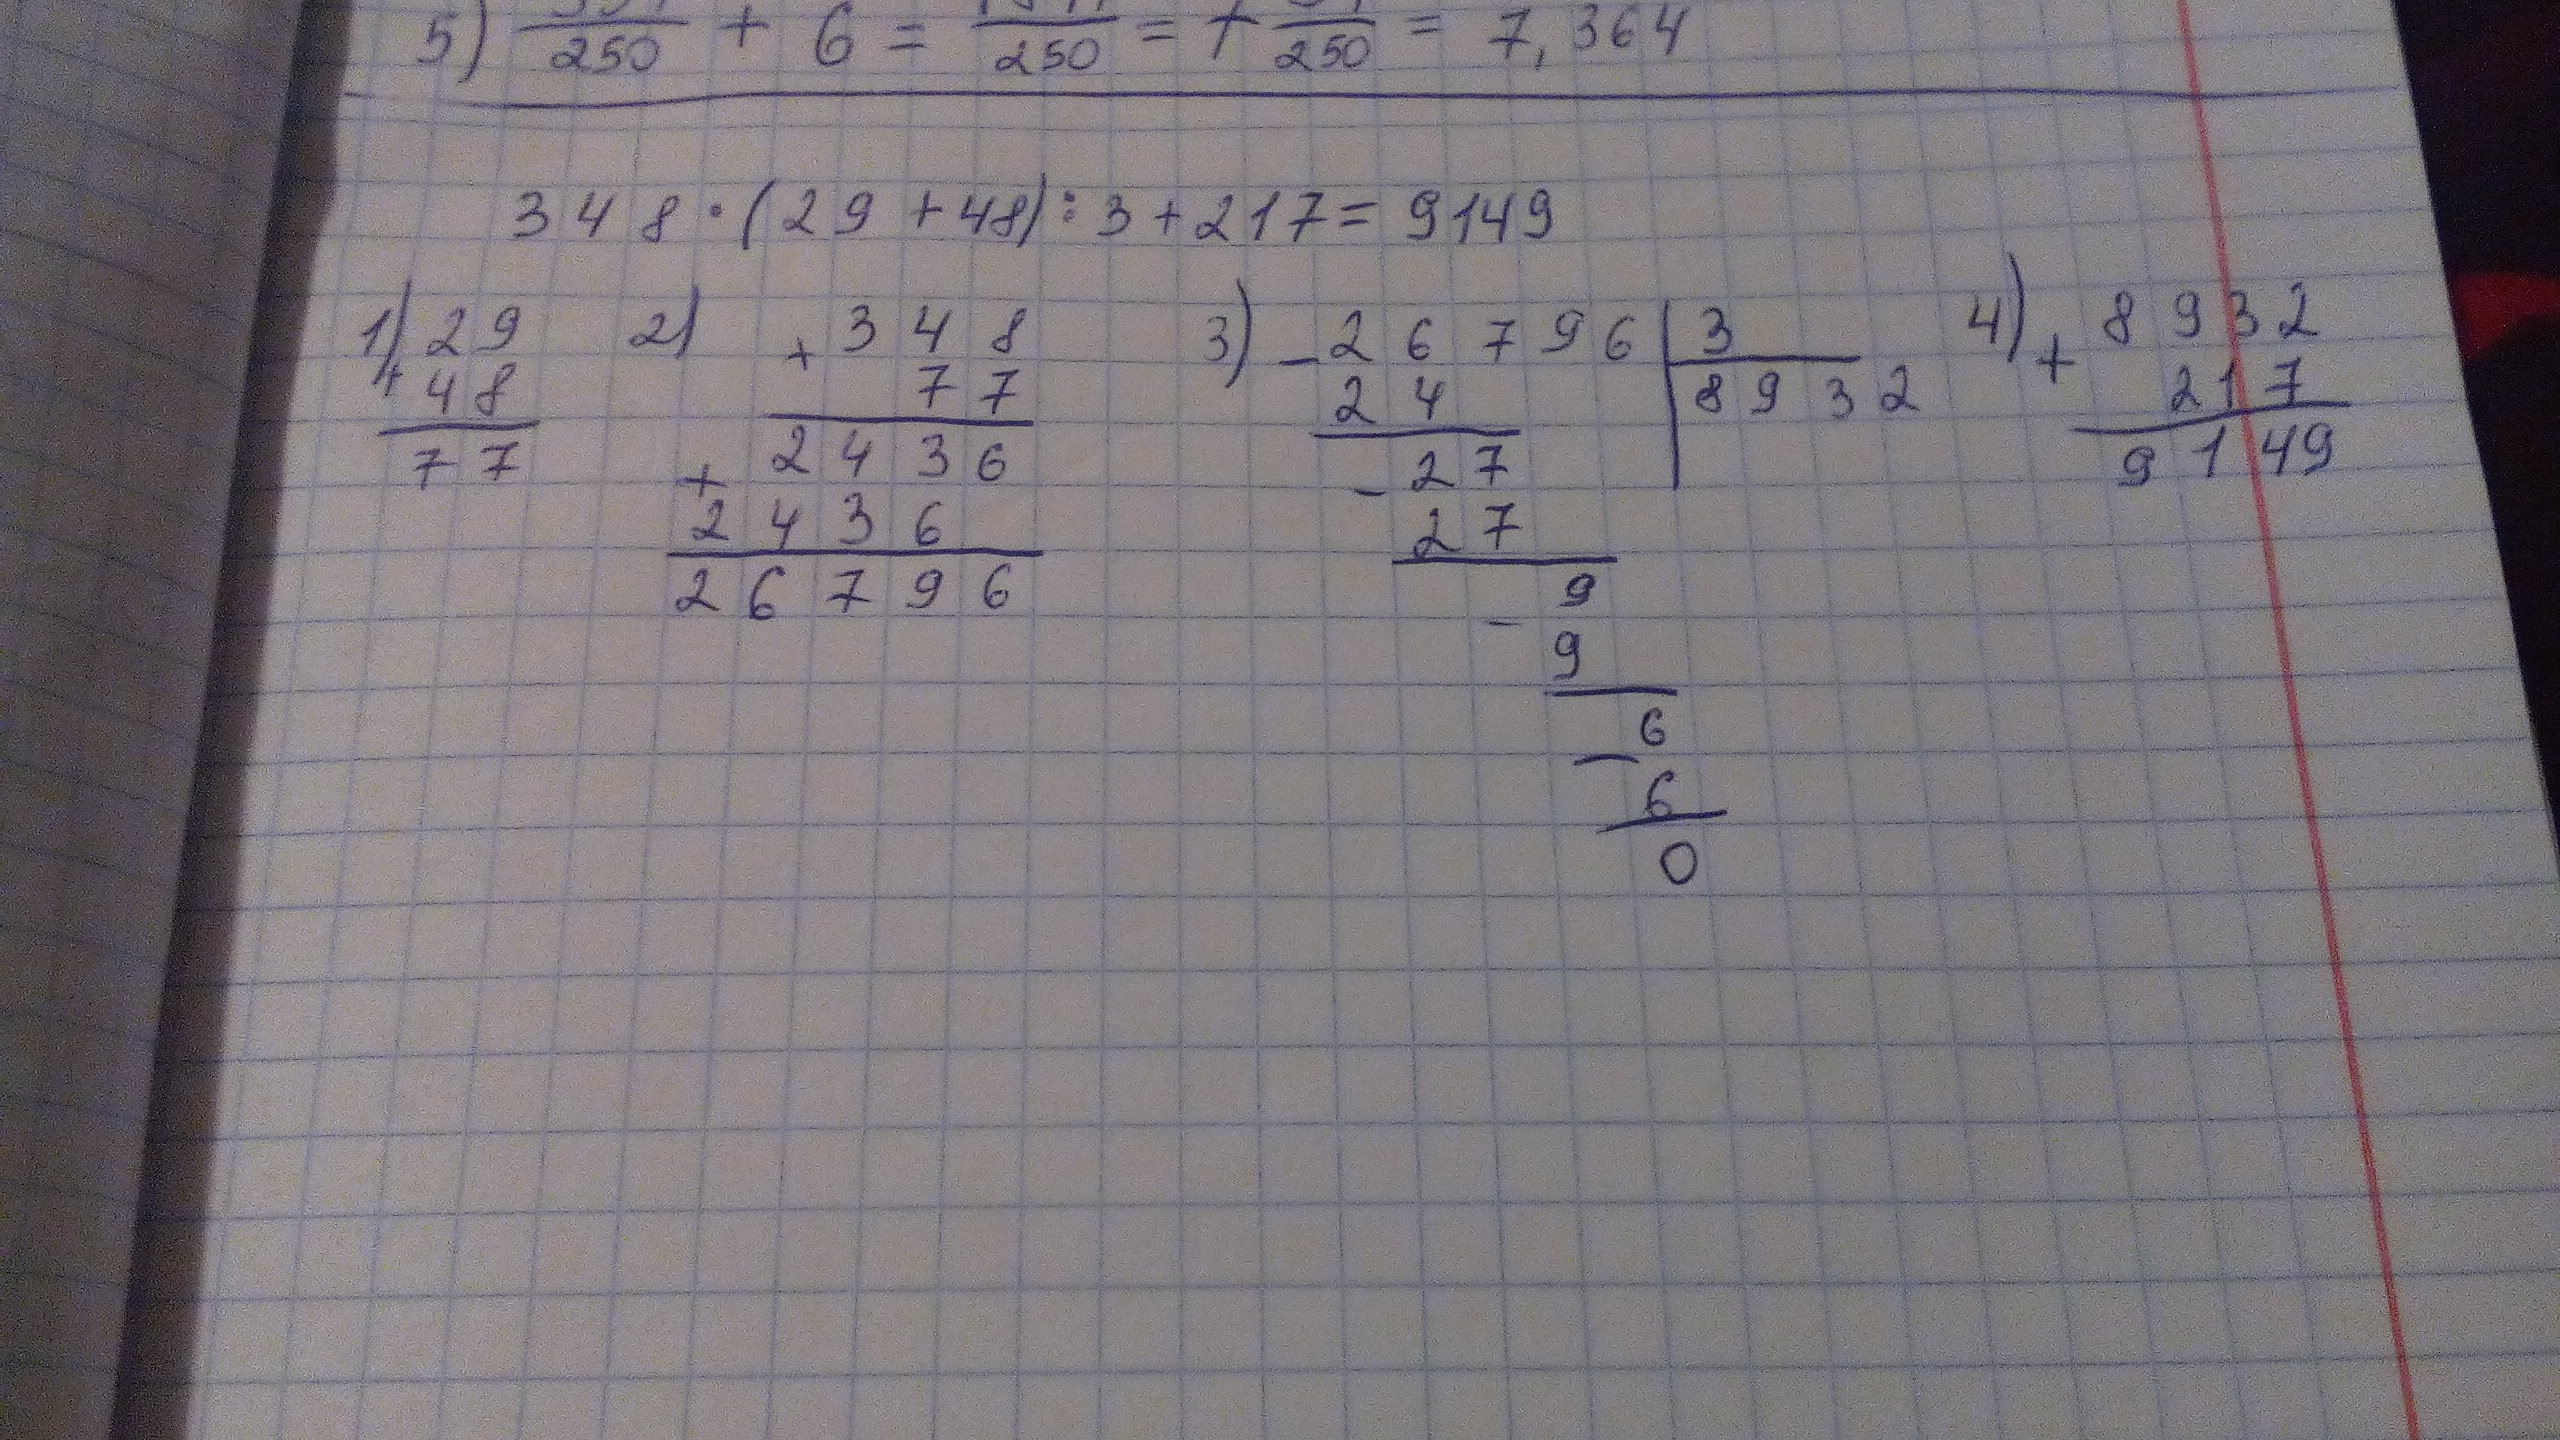 5) /250 + 6 = /250 = 7 /250 = 7,364
348·(29+48):3+217=9149
1) 29
+ 48
77
2) 348
+ 77
2436
+ 2436
26796
3) - 26796 | 3
24 8932
- 27
27
- 9
9
- 6
6
0
4) + 8932
217
9149